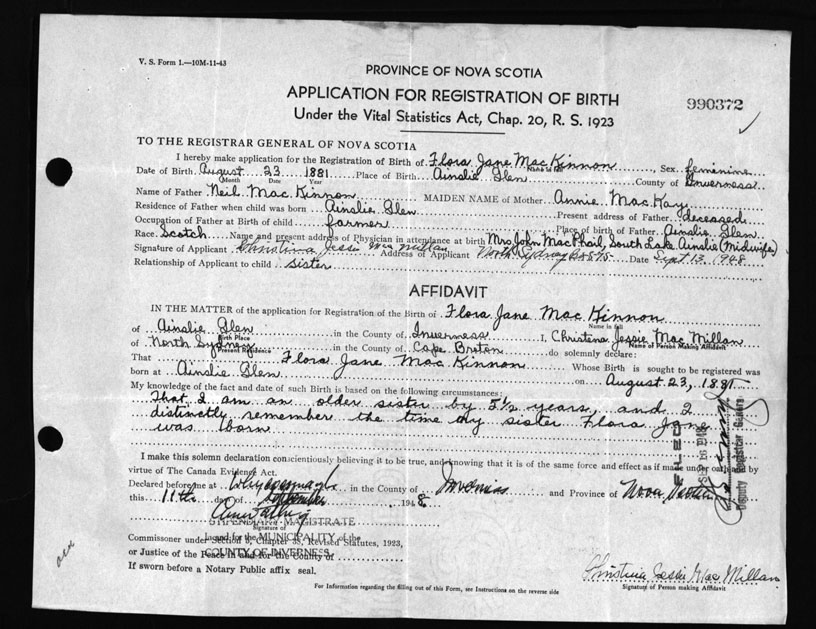 V. S. Form 1.—10M-11-43
PROVINCE OF NOVA SCOTIA
APPLICATION FOR REGISTRATION OF BIRTH
990372
Under the Vital Statistics Act, Chap. 20, R. S. 1923
TO THE REGISTRAR GENERAL OF NOVA SCOTIA
I hereby make application for the Registration of Birth of Flora Jane MacKinnon, Sex feminine
Name in full
Date of Birth August 23 1881 Place of Birth Ainslie Glen County of Inverness
Month Date Year
Name of Father Neil MacKinnon MAIDEN NAME of Mother Annie MacKay
Residence of Father when child was born Ainslie Glen Present address of Father deceased
Occupation of Father at Birth of child farmer Place of birth of Father Ainslie Glen
Race Scotch Name and present address of Physician in attendance at birth Mrs John MacPhail, South Lake Ainslie (Midwife)
Signature of Applicant Christina Jessie MacMillan Address of Applicant North Sydney Box 875 Date Sept 13 1948
Relationship of Applicant to child sister
AFFIDAVIT
IN THE MATTER of the application for Registration of the Birth of Flora Jane MacKinnon
Name in full
of Ainslie Glen in the County of Inverness I, Christena Jessie MacMillan
Birth Place Name of Person Making Affidavit
of North Sydney in the County of Cape Breton do solemnly declare:
Present Residence
That Flora Jane MacKinnon Whose Birth is sought to be registered was
born at Ainslie Glen on August 23, 1881
My knowledge of the fact and date of such Birth is based on the following circumstances:
That I am an older sister by 5½ years, and I
distinctly remember the time my sister Flora Jane
was born
FILED
Deputy Registrar General
I make this solemn declaration conscientiously believing it to be true, and knowing that it is of the same force and effect as if made under oath and by
virtue of The Canada Evidence Act.
Declared before me at Whycocomagh in the County of Inverness and Province of Nova Scotia
this 11th day of September 1948
STIPENDIARY MAGISTRATE
Signature of
in and for the MUNICIPALITY of the
Commissioner under Section 8, Chapter 38, Revised Statutes, 1923,
COUNTY OF INVERNESS
or Justice of the Peace in and for the County of
If sworn before a Notary Public affix seal.
Christina Jessie MacMillan
Signature of Person making Affidavit
For Information regarding the filling out of this Form, see Instructions on the reverse side